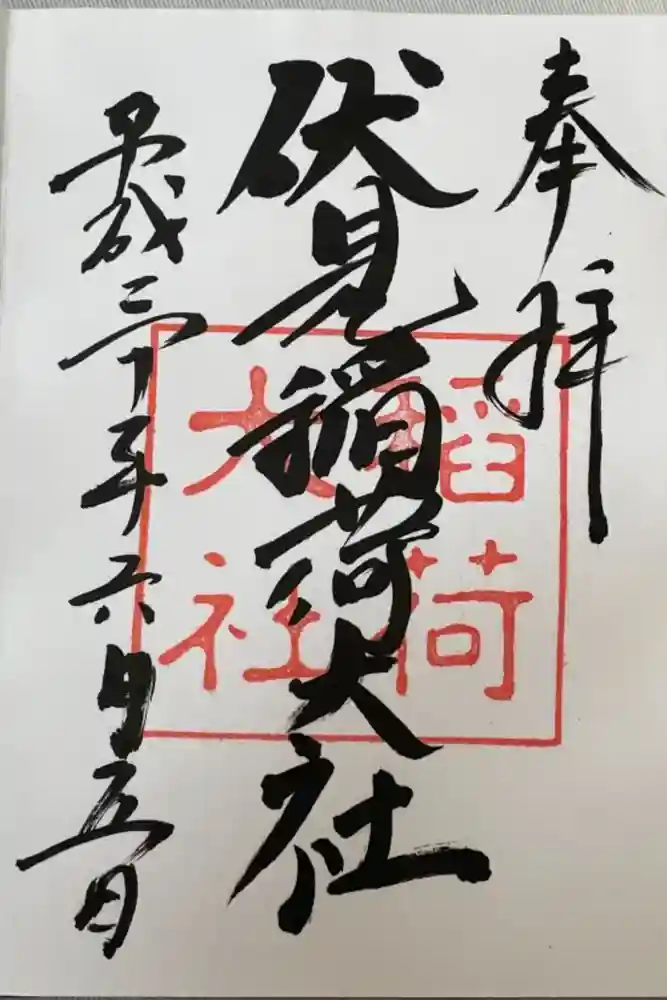 奉拝
伏見稲荷大社
平成三十年六月五日
稲荷
大社